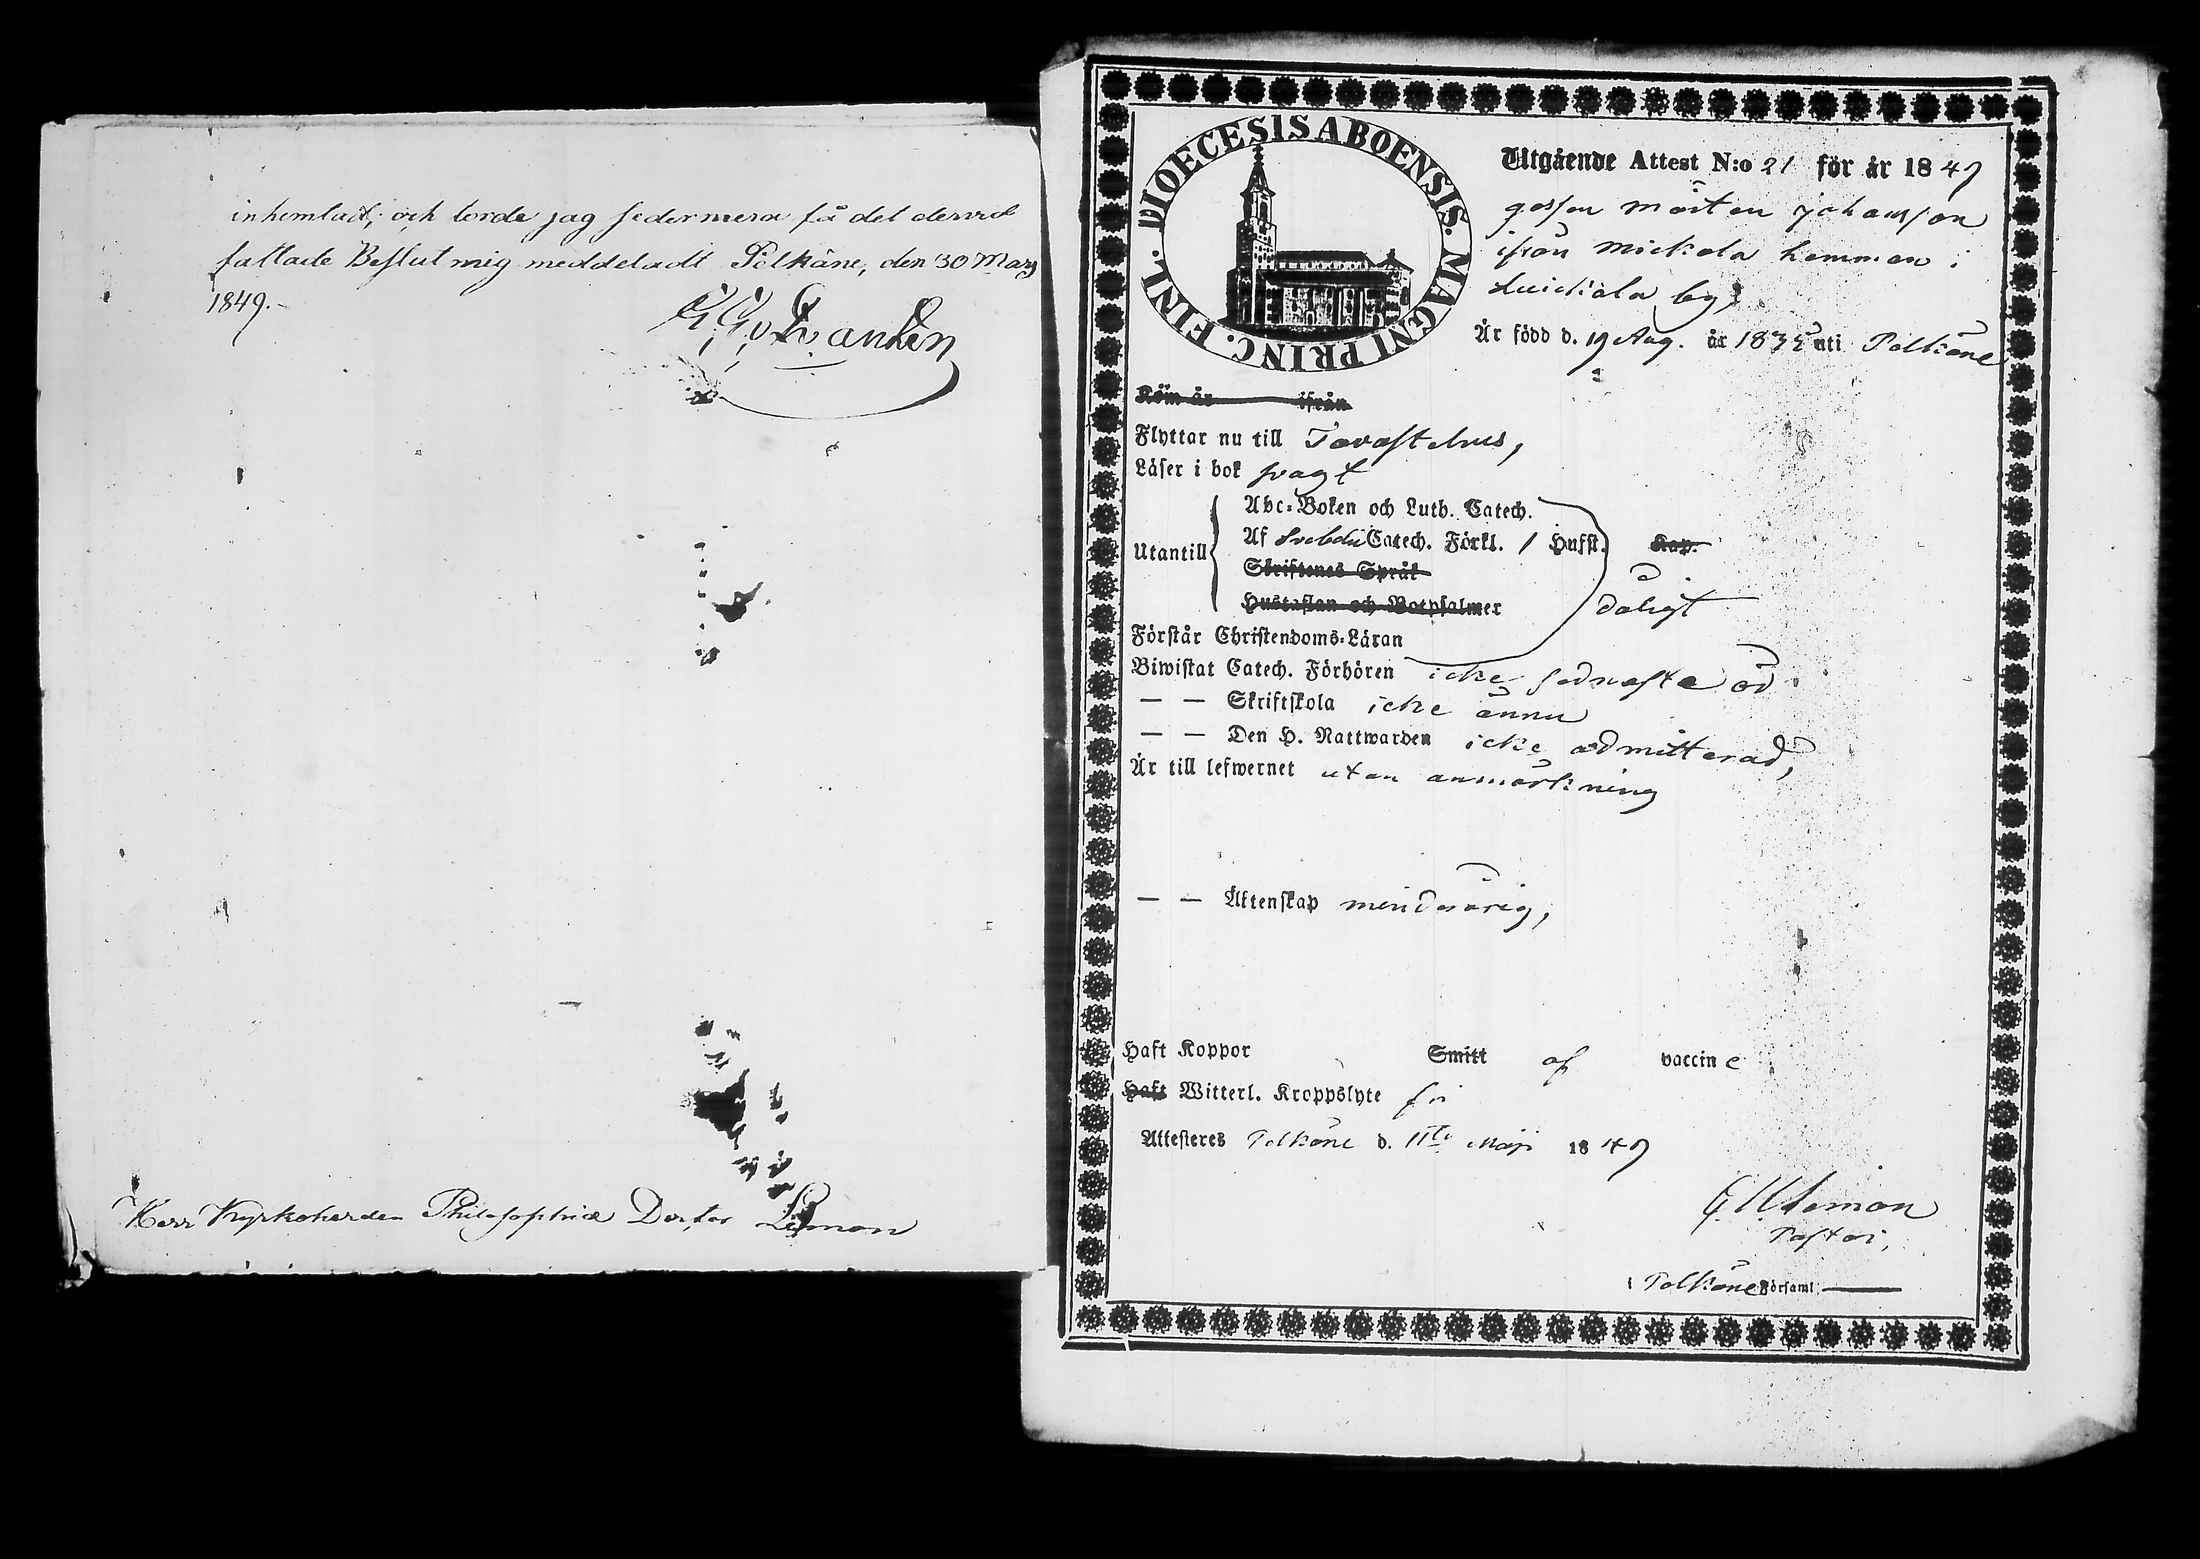 inhemtadt, och torde jag sedermera få det dervid
fattade Beslut mig meddeladt Pelkäne, den 30 Mars
1849.
Herr Kyrkoherden Philosophiæ Doctor Leman
DIOECESIS ABOENSIS. MAGNI PRINC. FINL.
Utgående Attest N:o 21 för år 1849
gossen Mårten Johansson
ifrån Mickola hemman i
by,
Är född d. 19 Aug. år 1835 uti Pelkäne
Köm år ifrån
Flyttar nu till Tavastehus,
Läser i bok svagt
Utantill
Abc-Boken och Luth. Catech.
Af Svebelii Catech. Förkl. 1 Hufst. Kap.
Skriftenes Språk
Hustaflan och Botpsalmer
dåligt
Förstår Christendoms-Läran
Biwistat Catech. Förhören icke sednaste år
— — Skriftskola icke ännu
— — Den H. Nattwarden icke admitterad,
Är till lefwernet utan anmärkning
— — Äktenskap minderårig,
Haft Koppor Smitt af vaccine
Haft Witterl. Kroppslyte fri
Attesteres Pelkäne d. 11te Maji 1849
Leman
Pastor,
i Pelkäne Församl.